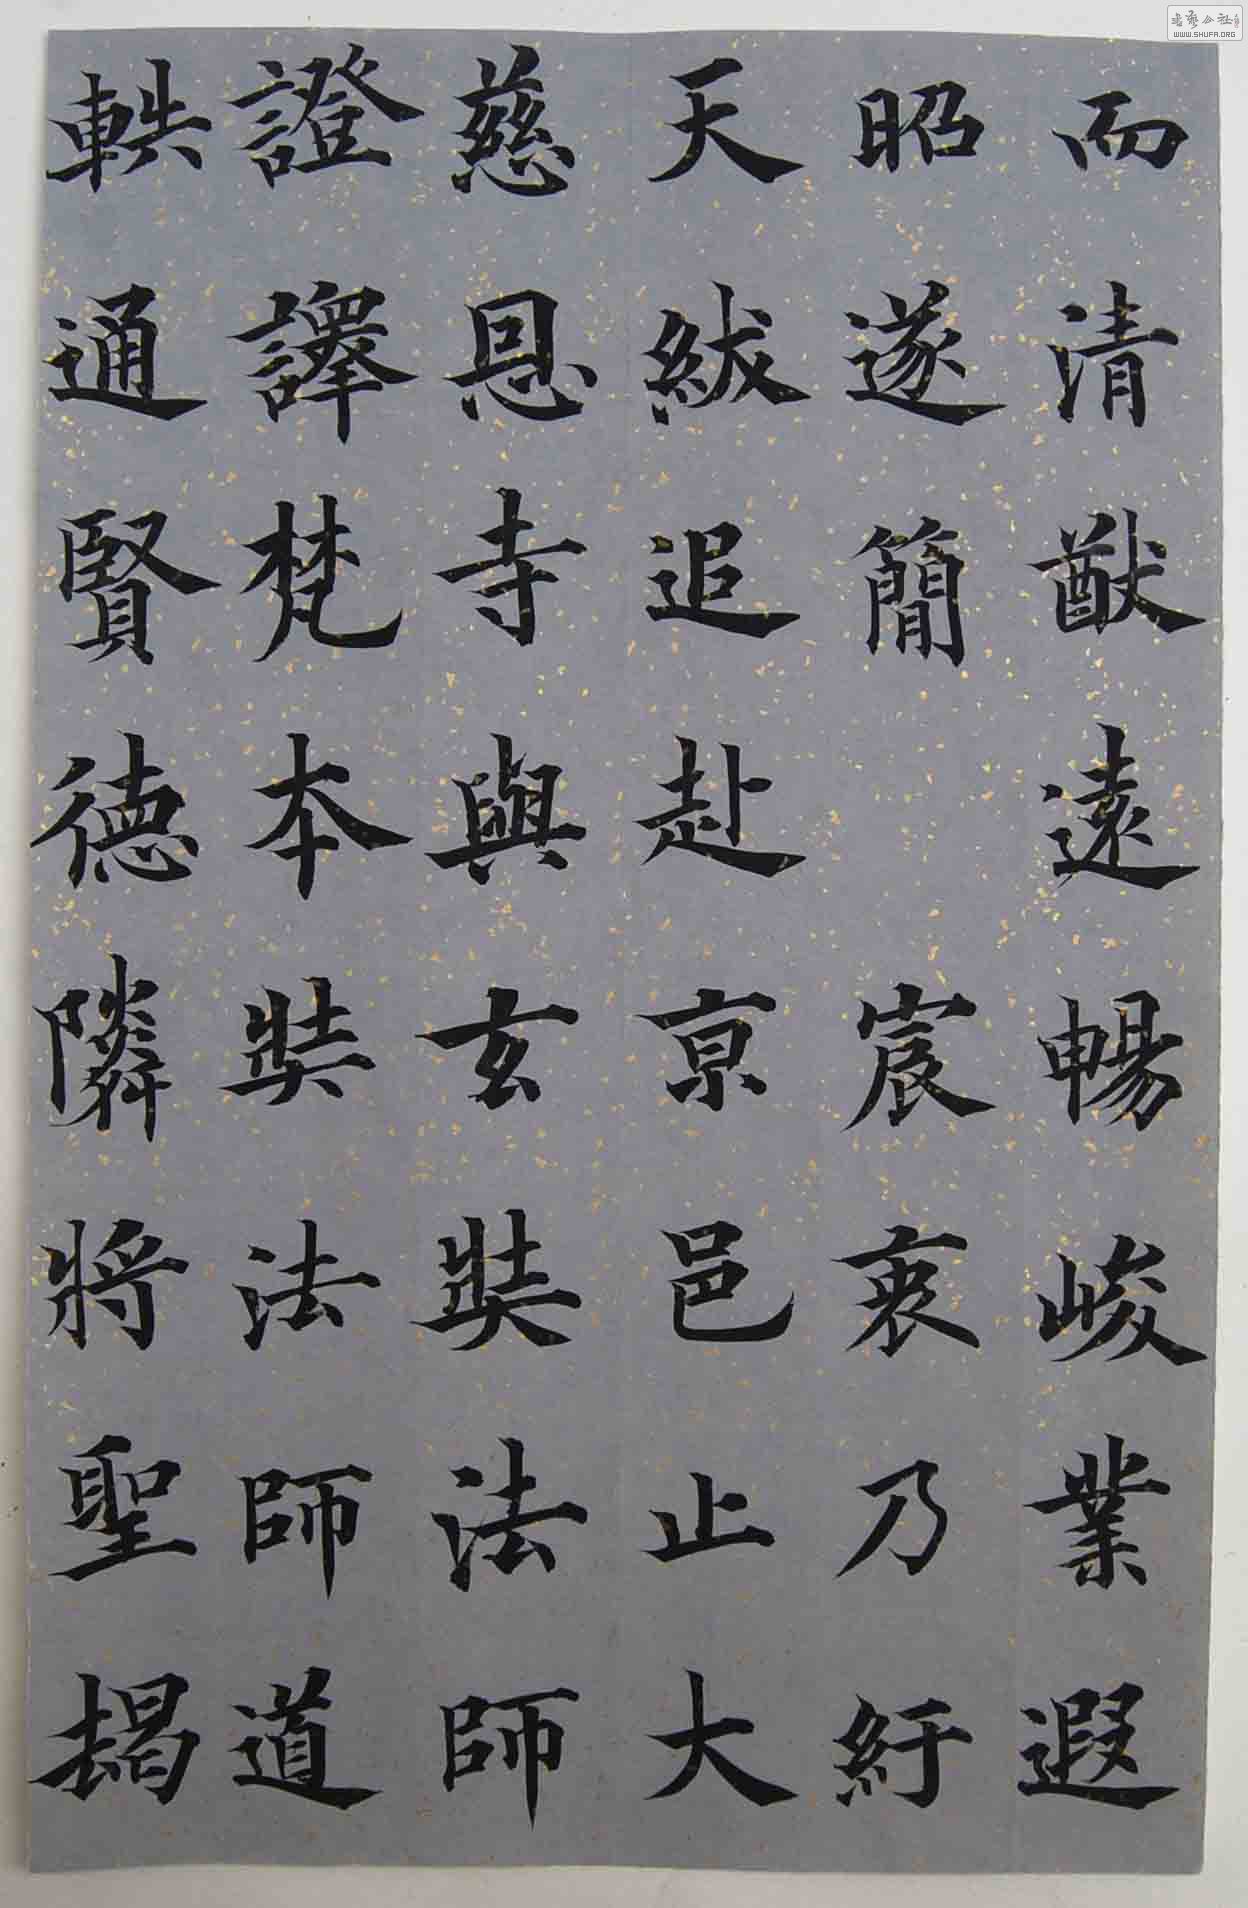 而清猷遠暢峻業遐
昭遂簡　宸衷乃紆
天紱追赴京邑止大
慈恩寺與玄奘法師
證譯梵本奘法師道
軼通賢德鄰將聖揭
WWW.SHUFA.ORG